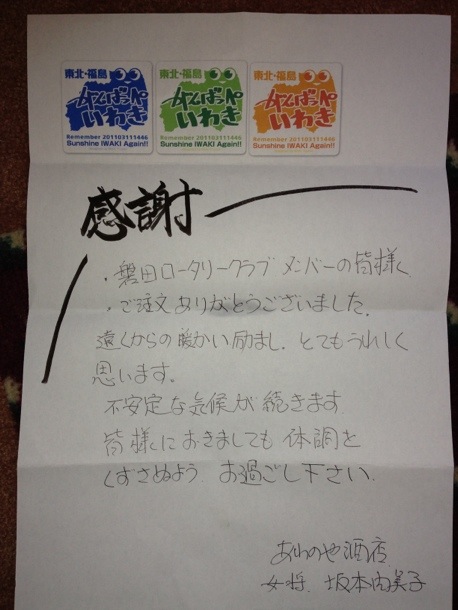 東北・福島 東北・福島 東北・福島
がんばっぺ がんばっぺ がんばっぺ
いわき いわき いわき
Remember 201103111446 Remember 201103111446 Remember 201103111446
Sunshine IWAKI Again!! Sunshine IWAKI Again!! Sunshine IWAKI Again!!
感謝
・磐田ロータリークラブ メンバーの皆様へ
・ご注文ありがとうございました。
遠くからの暖かい励まし、とてもうれしく
思います。
不安定な気候が続きます
皆様におきましても 体調を
くずさぬよう お過ごし下さい。
のや酒店
女将 坂本